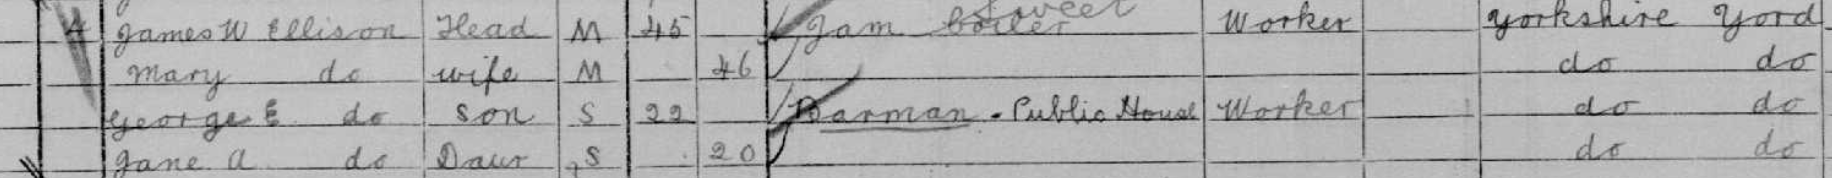 4 James W Ellison Head M 45 Jam boiler Sweet Worker Yorkshire York
Mary do wife M 46 do do
George E do son S 22 Barman - Public House Worker do do
Jane A do Daur S 20 do do